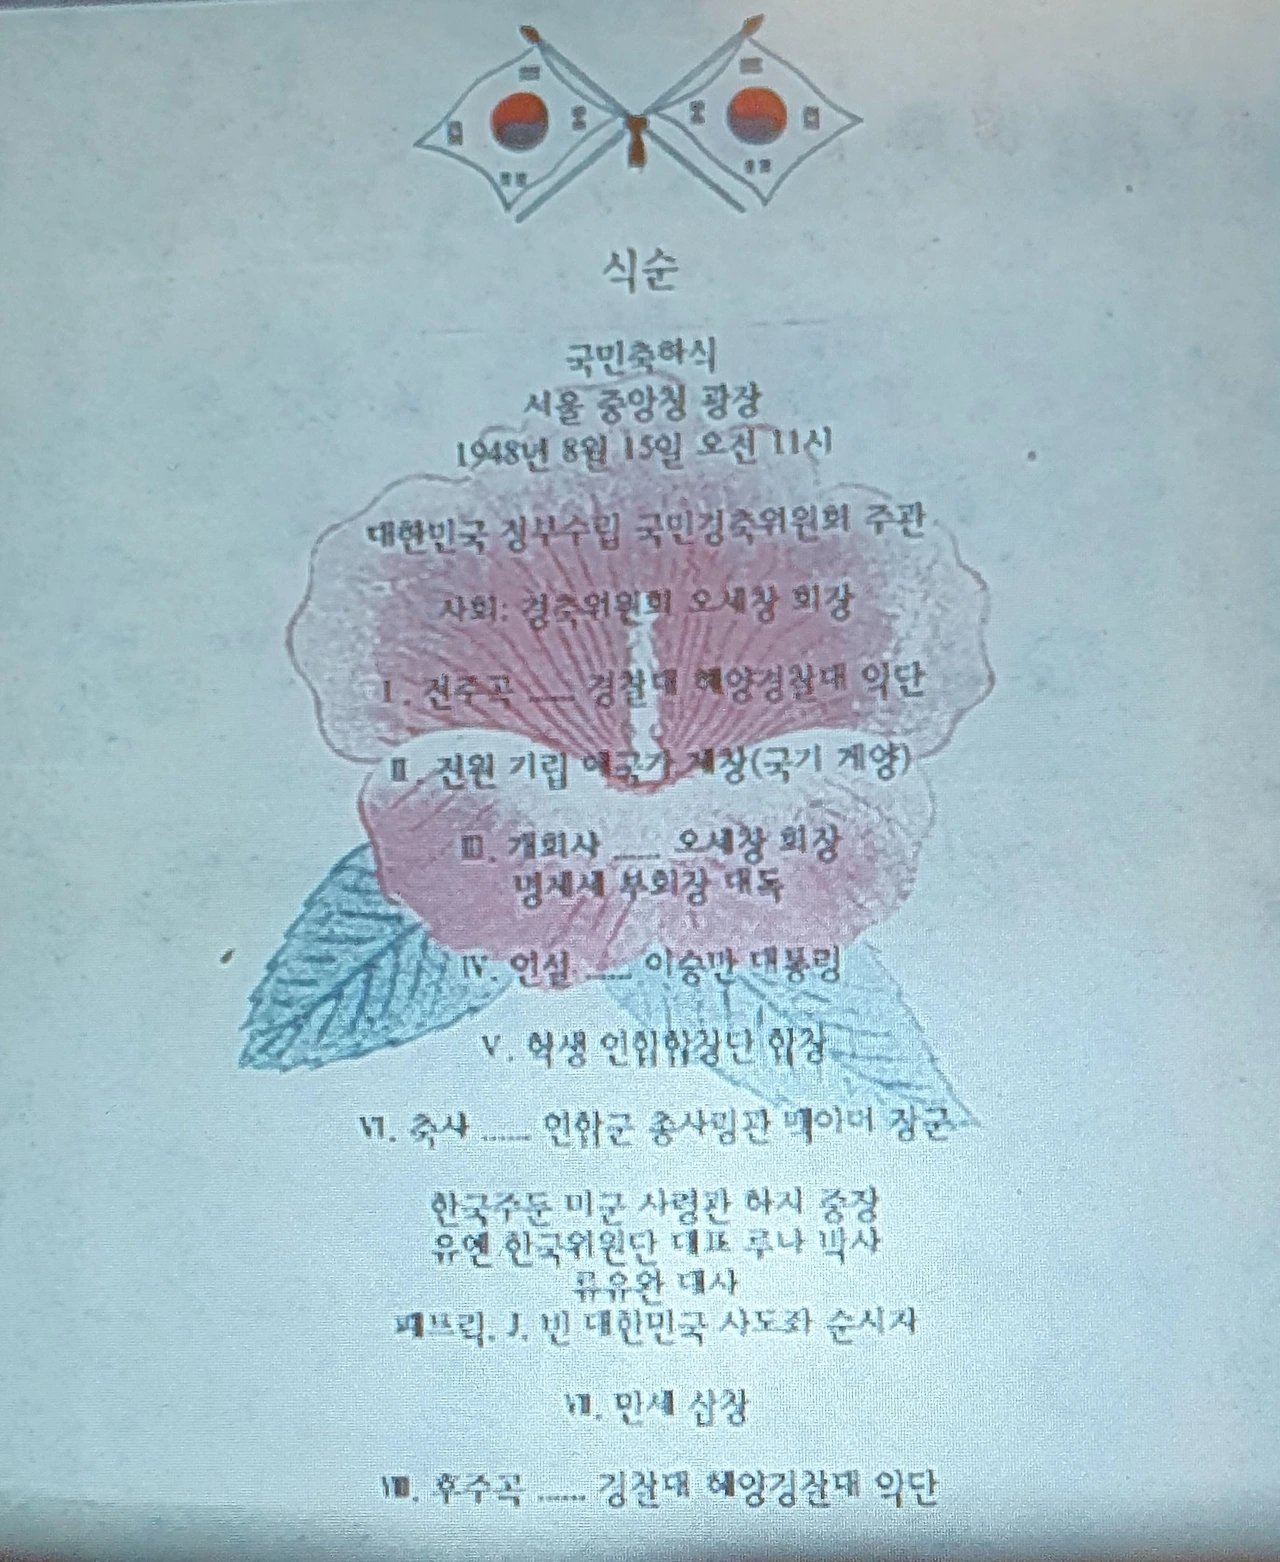 식순
국민축하식
서울 중앙청 광장
1948년 8월 15일 오전 11시
대한민국 정부수립 국민경축위원회 주관
사회: 경축위원회 오세창 회장
Ⅰ. 전주곡 ...... 경찰대 해양경찰대 악단
Ⅱ. 전원 기립 애국가 제창(국기 게양)
Ⅲ. 개회사 ...... 오세창 회장
명제세 부회장 대독
Ⅳ. 연설 ...... 이승만 대통령
Ⅴ. 학생 연합합창단 합창
Ⅵ. 축사 ...... 연합군 총사령관 맥아더 장군
한국주둔 미군 사령관 하지 중장
유엔 한국위원단 대표 루나 박사
류유완 대사
패트릭. J. 번 대한민국 사도좌 순시자
Ⅶ. 만세 삼창
Ⅷ. 후주곡 ...... 경찰대 해양경찰대 악단